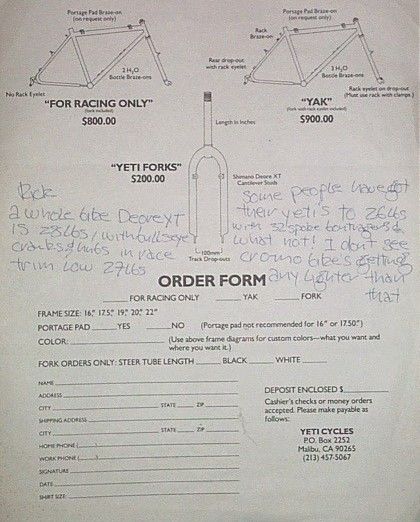 Portage Pad Braze-on
(on request only)
2 H₂O
Bottle Braze-ons
No Rack Eyelet
"FOR RACING ONLY"
(fork included)
$800.00
Portage Pad Braze-on
(on request only)
Rack
Braze-on
Rear drop-out
with rack eyelet
2 H₂O
Bottle Braze-ons
Rack eyelet on drop-out
(Must use rack with clamps.)
"YAK"
$900.00
Length in Inches
"YETI FORKS"
$200.00
Shimano Deore XT
Cantilever Studs
100mm
Track Drop-outs
Rick
a whole bike Deore XT
is 28 lbs, with bullseye
cranks & hubs in race
trim low 27 lbs
Some people have got
their yeti's to 26 lbs
with 32 spoke bontragers &
what not! I don't see
cromo bikes getting
any lighter than
that
ORDER FORM
____ FOR RACING ONLY ____ YAK ____ FORK
FRAME SIZE: 16," 17.5," 19," 20," 22"
PORTAGE PAD ____ YES ____ NO (Portage pad not recommended for 16" or 17.50")
COLOR: ____ (Use above frame diagrams for custom colors—what you want and
where you want it.)
FORK ORDERS ONLY: STEER TUBE LENGTH ____ BLACK ____ WHITE ____
NAME
ADDRESS
CITY STATE ZIP
SHIPPING ADDRESS
CITY STATE ZIP
HOME PHONE ( )
WORK PHONE ( )
SIGNATURE
DATE
SHIRT SIZE:
DEPOSIT ENCLOSED $
Cashier's checks or money orders
accepted. Please make payable as
follows:
YETI CYCLES
P.O. Box 2252
Malibu, CA 90265
(213) 457-5067